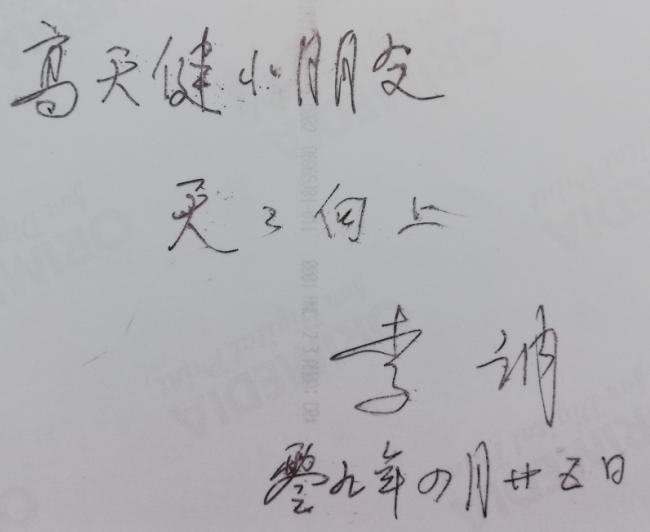 高天健小朋友
天天向上
李讷
零九年四月廿五日